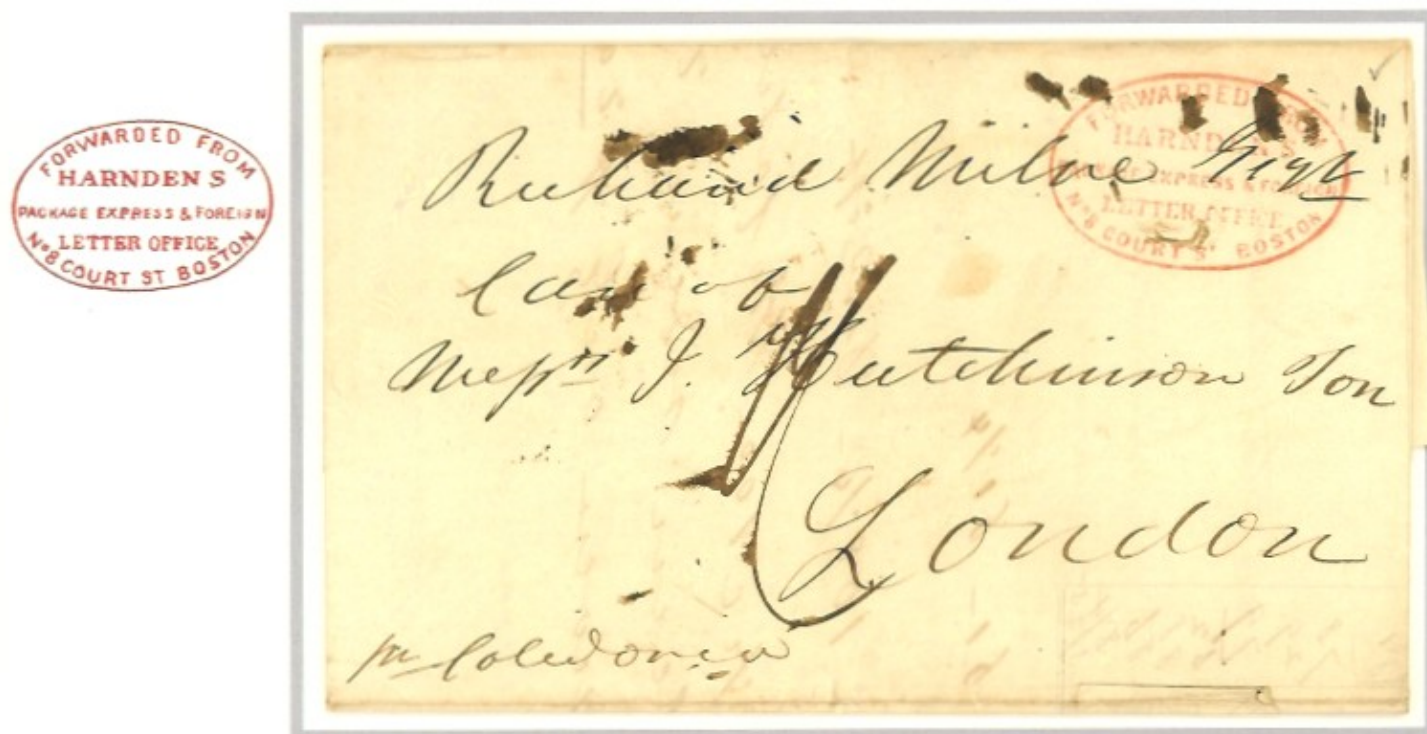 FORWARDED FROM
HARNDENS
PACKAGE EXPRESS & FOREIGN
LETTER OFFICE
No 8 COURT ST BOSTON
FORWARDED FROM
HARNDENS
PACKAGE EXPRESS & FOREIGN
LETTER OFFICE
No 8 COURT St. BOSTON
Richard Milne Esqr
Care of
Messrs J. Hutchinson Son
London
pr Caledonia